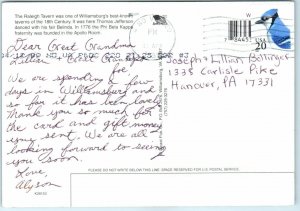 The Raleigh Tavern was one of Williamsburg's best-known
taverns of the 18th Century. It was here Thomas Jefferson
danced with his fair Belinda. In 1776 the Phi Beta Kappa
fraternity was founded in the Apollo Room.
Dear Great Grandma
Lillian & Great Grandpa
Joe
We are spending a few
days in Williamsburg and
so far it has been lovely.
Thank you so much for
the card and gift money
you sent. We are all
looking forward to seeing
you soon.
Love,
Alyson
USA
20
Joseph & Lillian Bollinger
1335 Carlisle Pike
Hanover, PA 17331
PLEASE DO NOT WRITE BELOW THIS LINE. SPACE RESERVED FOR U.S. POSTAL SERVICE.